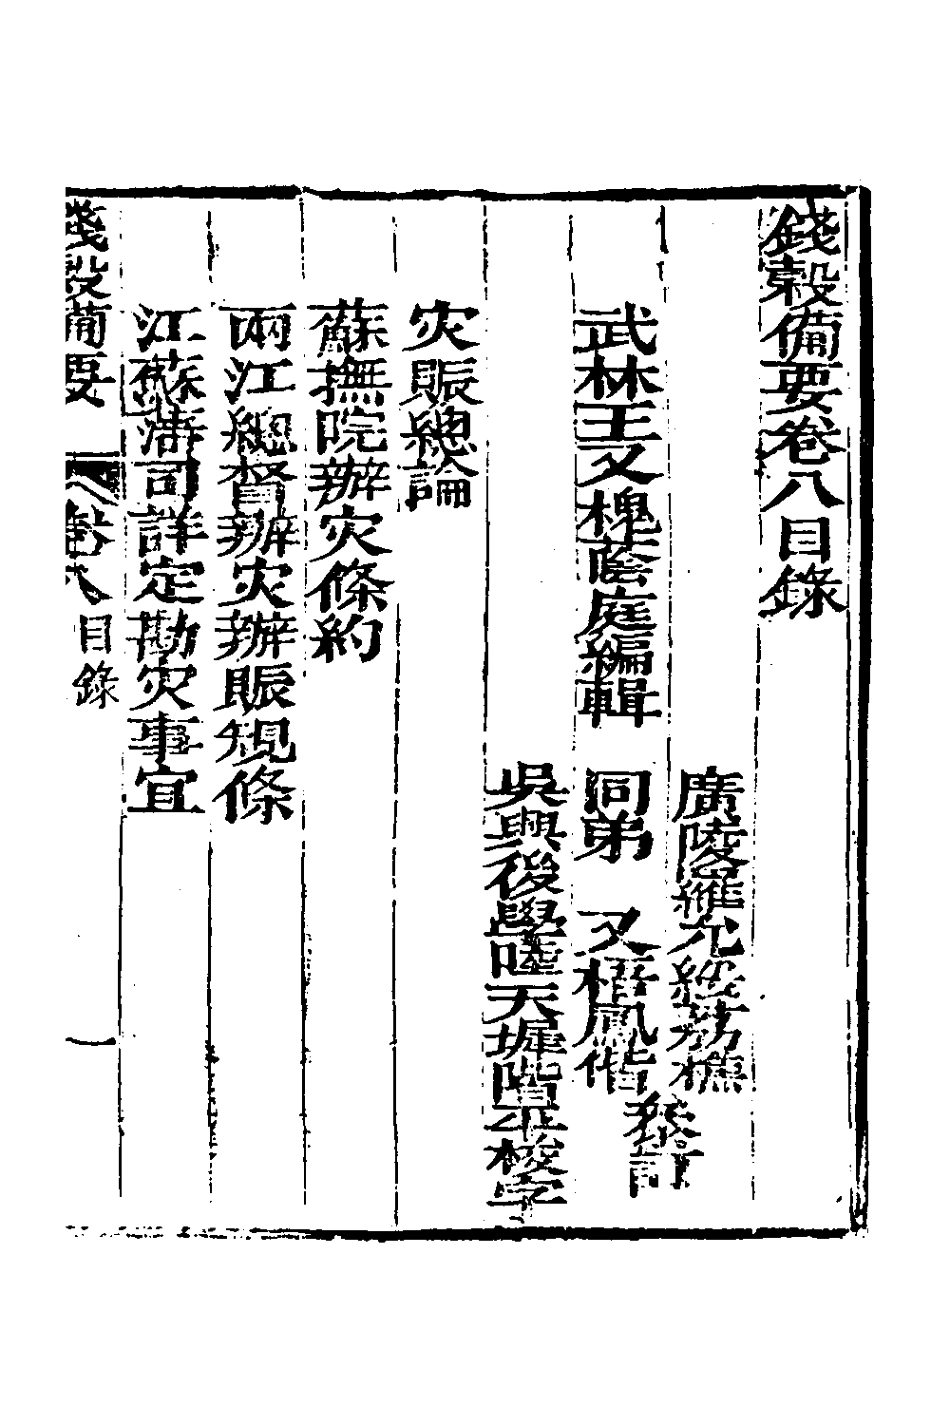 錢穀備要卷八目錄
廣陵羅允綏樵
武林王又槐蔭庭編輯　同弟　又梧鳳偕
參訂
吳興後學陸天墀階平校字
灾賑總論
蘇撫院辦灾條約
兩江總督辦灾辦賑規條
江蘇藩司詳定勘灾事宜
錢穀備要　卷八目錄　一